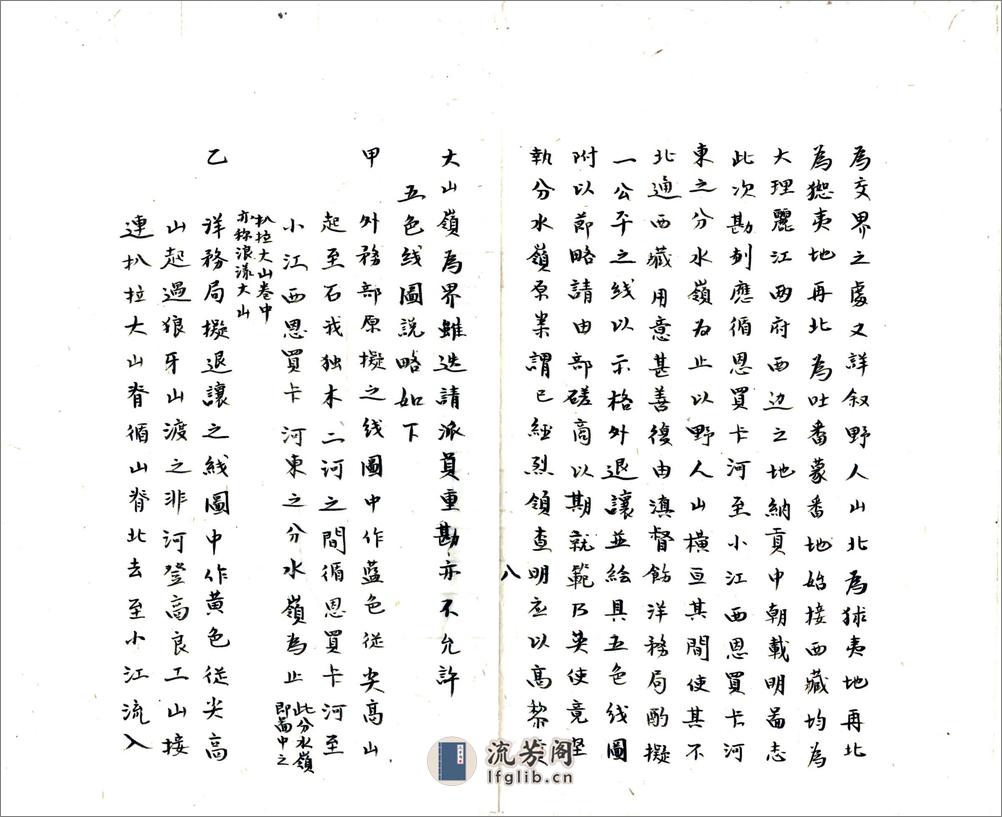 為交界之處又詳叙野人山北為狱夷地再北
為㺄夷地再北為吐番蒙番地始接西藏均為
大理麗江两府西边之地納貢中朝載明啚志
此次勘划應循恩買卡河至小江西恩買卡河
東之分水嶺为止以野人山橫亘其間使其不
北通西藏用意甚善復由滇督飭洋務局酌擬
一公平之线以示格外退讓並絵具五色线圖
附以節略請由部磋商以期就範乃英使竟堅
執分水嶺原案謂已經烈領查明应以高黎
八
大山嶺為界雖迭請派員重勘亦不允許
五色线圖說略如下
甲 外務部原擬之线圖中作藍色從尖高山
起至石我独木二河之間循恩買卡河至
小江西恩買卡河東之分水嶺為止此分水嶺
即啚中之
扒拉大山卷中
亦称浪漾大山
乙 详務局擬退讓之线圖中作黄色從尖高
山起過狼牙山渡之非河登高良工山接
連扒拉大山脊循山脊北去至小江流入
流芳阁
lfglib.cn